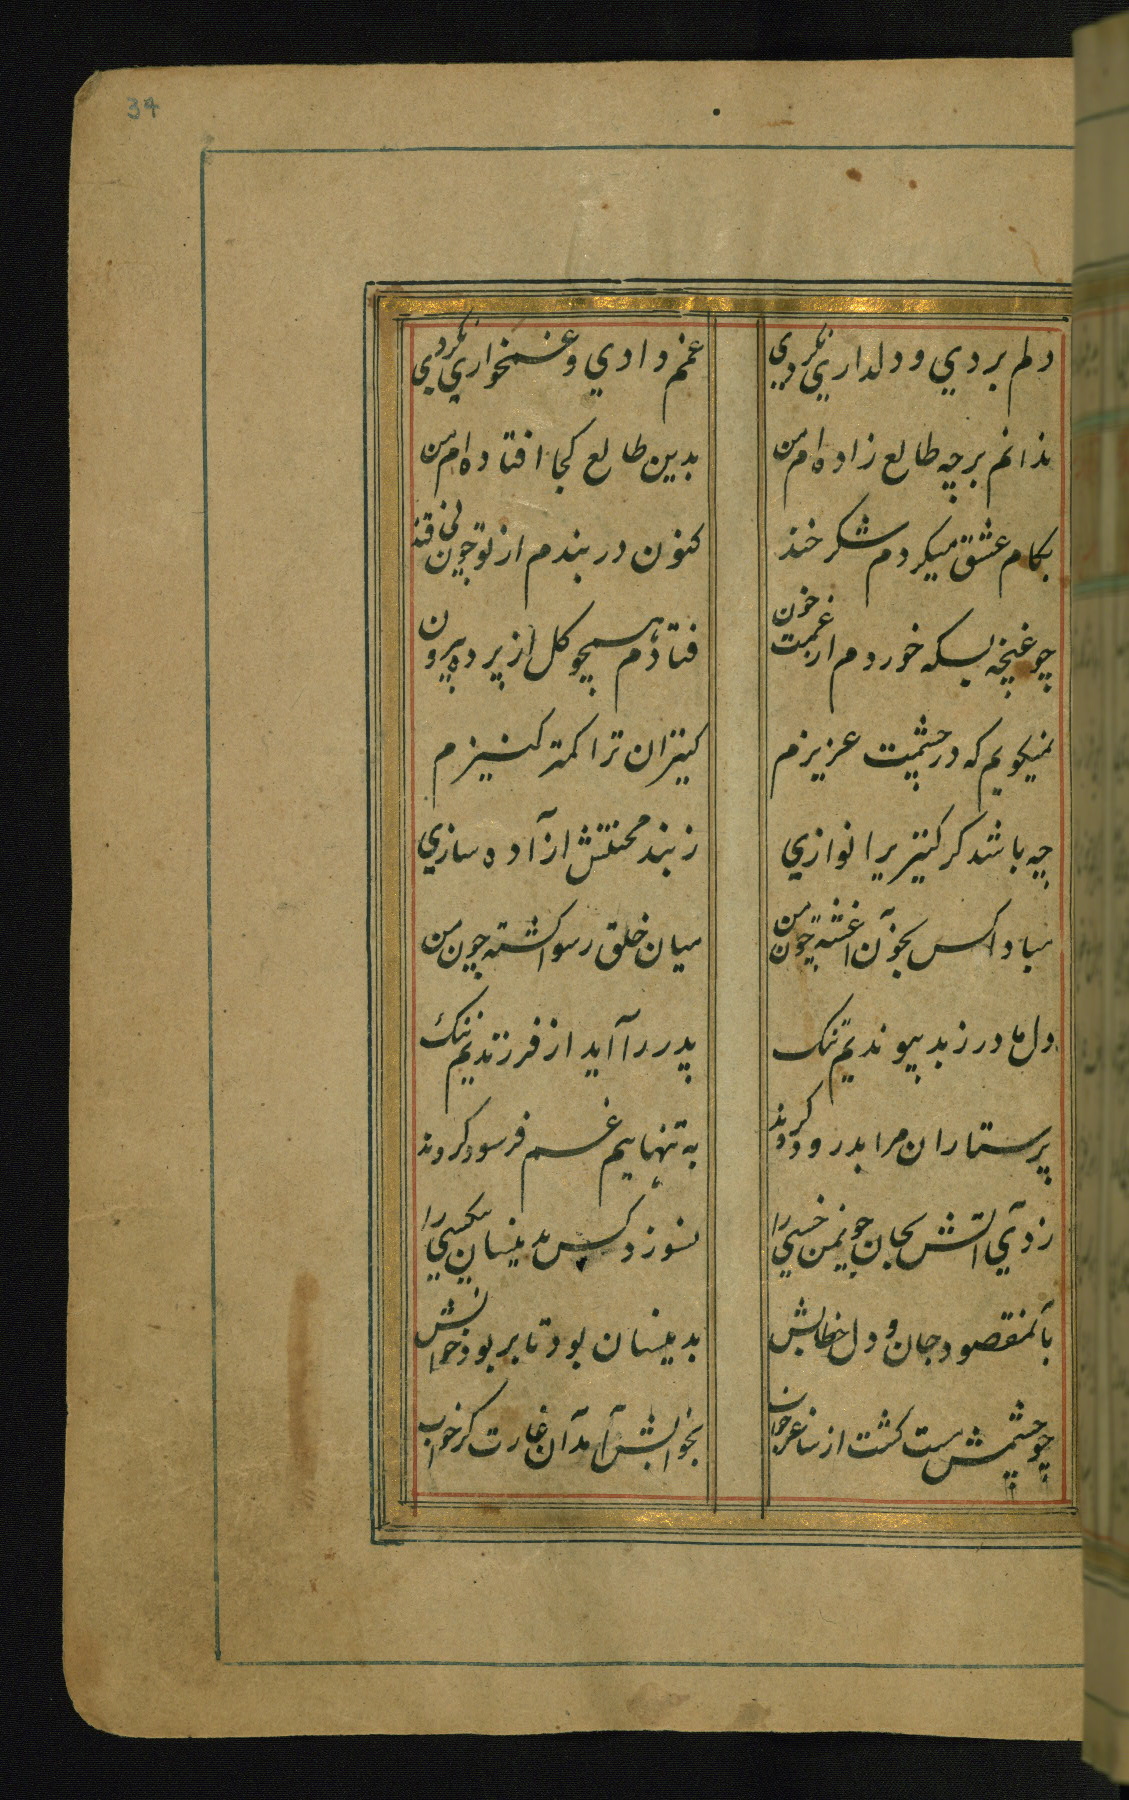 34
دلم بردي و دلداري نكردي غمم دادي و غمخواري نكردي
ندانم بر چه طالع زاده ام من بدين طالع كجا افتاده ام من
بكام عشق ميكردم شكر خند كنون در بندم از تو چون ني قند
چو غنچه بسكه خوردم از غمت خون فتادم همچو كل از پرده بيرون
نميكويم كه در چشمت عزيزم كنيزان ترا كمتر كنيزم
چه باشد كر كنيزيرا نوازي ز بند محنتش ازآده سازي
مبادا كس بخون آغشته چون من ميان خلق رسوا كشته چون من
دل مادر ز بد پيونديم تنك پدر را آيد از فرزنديم ننك
پرستاران مرا بدرود كردند به تنهاييم غم فرسود كردند
زدي آتش بجان چونمن خسي را نسوزد كس بدينسان بيكسي را
بآنمقصود جان و دل خطابش بدينسان بود تا بربود خوابش
چو چشمش مست كشت از ساغر خواب بخوابش آمد آن غارت كر خواب